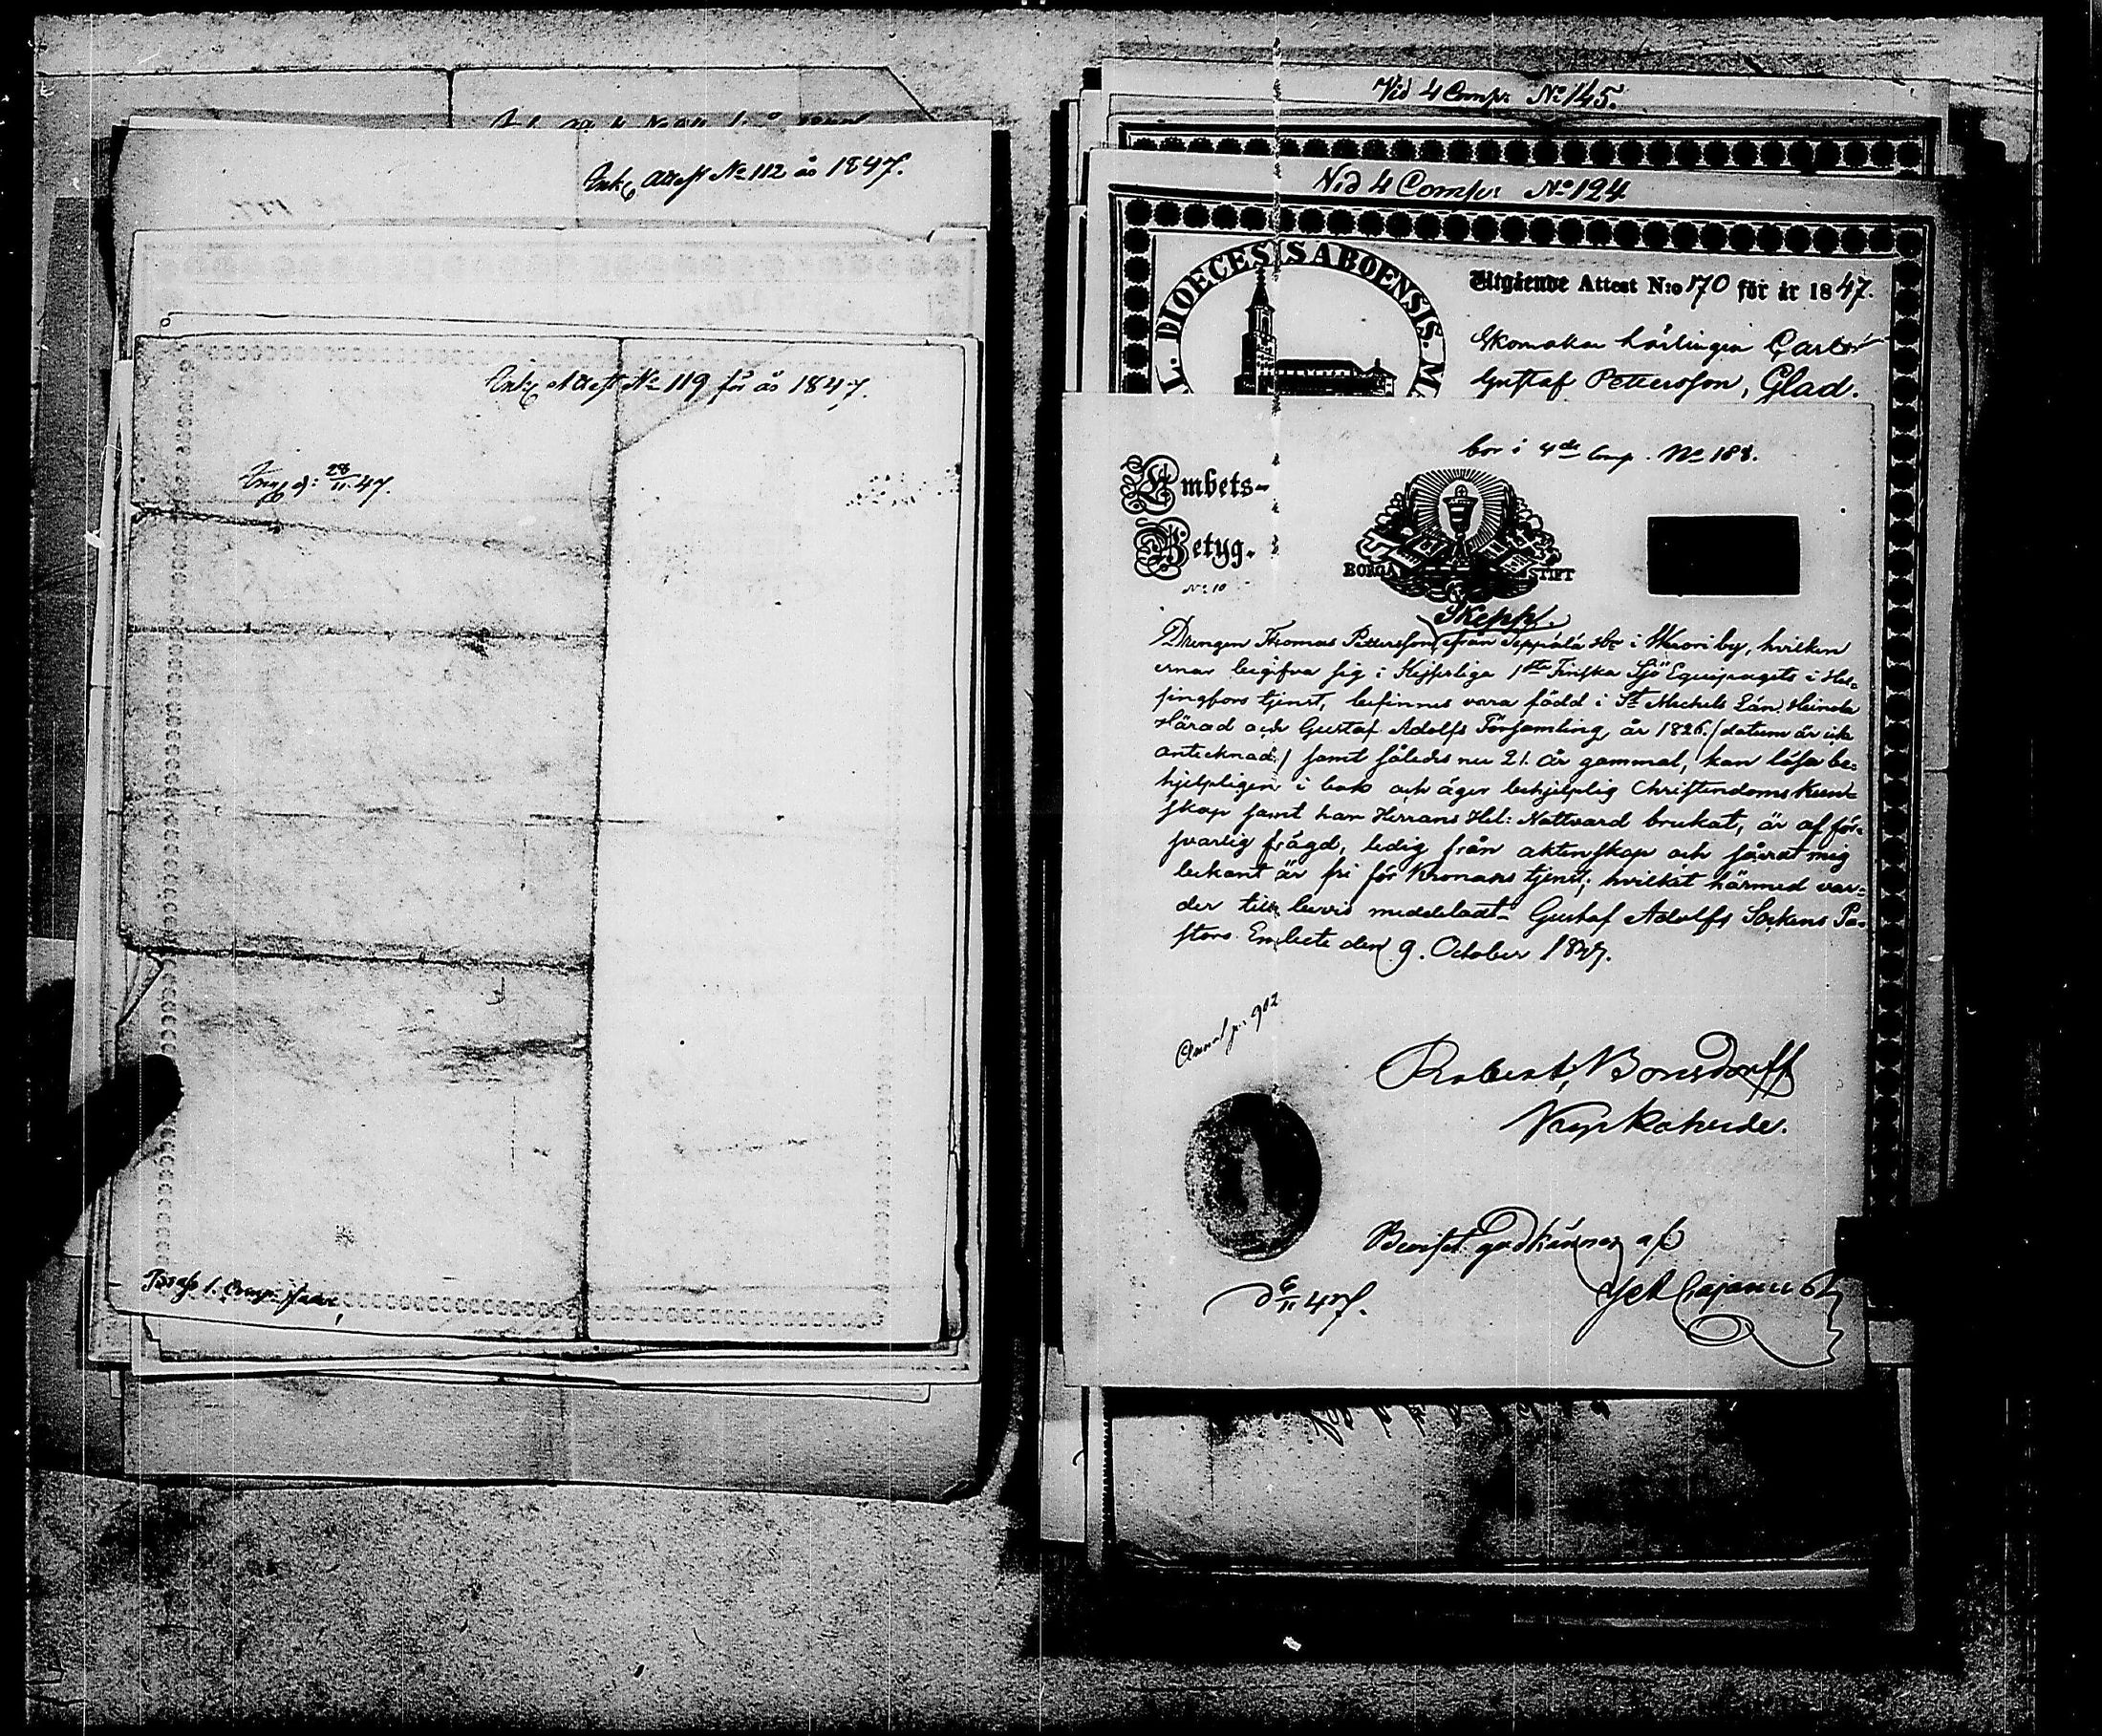 Ink. Attest No 112 år 1847.
Ink. Attest No 119 för år 1847.
28/11 47.
1. Comp.
Vid 4 Comp. No 145.
Vid 4 Comp. No 124
DIOECESIS ABOENSIS. M
Utgående Attest N:o 170 för år 1847.
Skomakar Lärlingen Carl
Gustaf Pettersson, Glad.
bor i 4de Comp. No 188.
Embets-
Betyg.
No 10
BORGÅ STIFT
Skepp.
Drengen Thomas Pettersson, från Seppälä i Wuori by, hvilken
ernar begifva sig i Kejserliga 1sta Finska Sjö Equipagets i Hel-
singfors tjenst, befinnes vara född i St Michels Län, Heinola
Härad och Gustaf Adolfs Församling, år 1826. /datum är icke
antecknad/ samt således nu 21. år gammal, kan läsa be-
hjelpligen i bok och äger behjelplig Christendoms kun-
skap samt har Herrans Hel: Nattvard brukat, är af för-
svarlig frägd, ledig från äktenskap och såvidt mig
bekant är fri för Kronans tjenst; hvilket härmed var-
der till bevis meddeladt. Gustaf Adolfs Sockens Pa-
stors Embete den 9. October 1847.
902
Robert Bonsdorff
Kyrkoherde.
Beviset godkännes af
d 6/11 47.
Cajanus